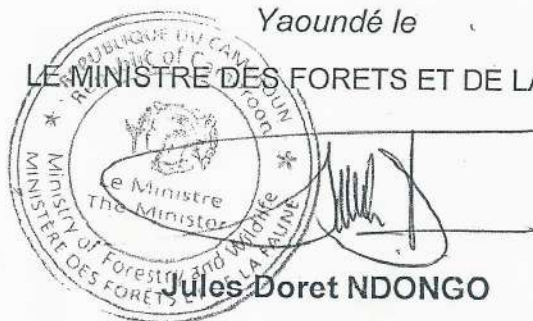 Yaoundé le
LE MINISTRE DES FORETS ET DE LA
REPUBLIQUE DU CAMEROUN
Republic of Cameroon
Le Ministre
The Minister
Ministry of Forestry and Wildlife
MINISTÈRE DES FORÊTS ET DE LA FAUNE
Jules Doret NDONGO